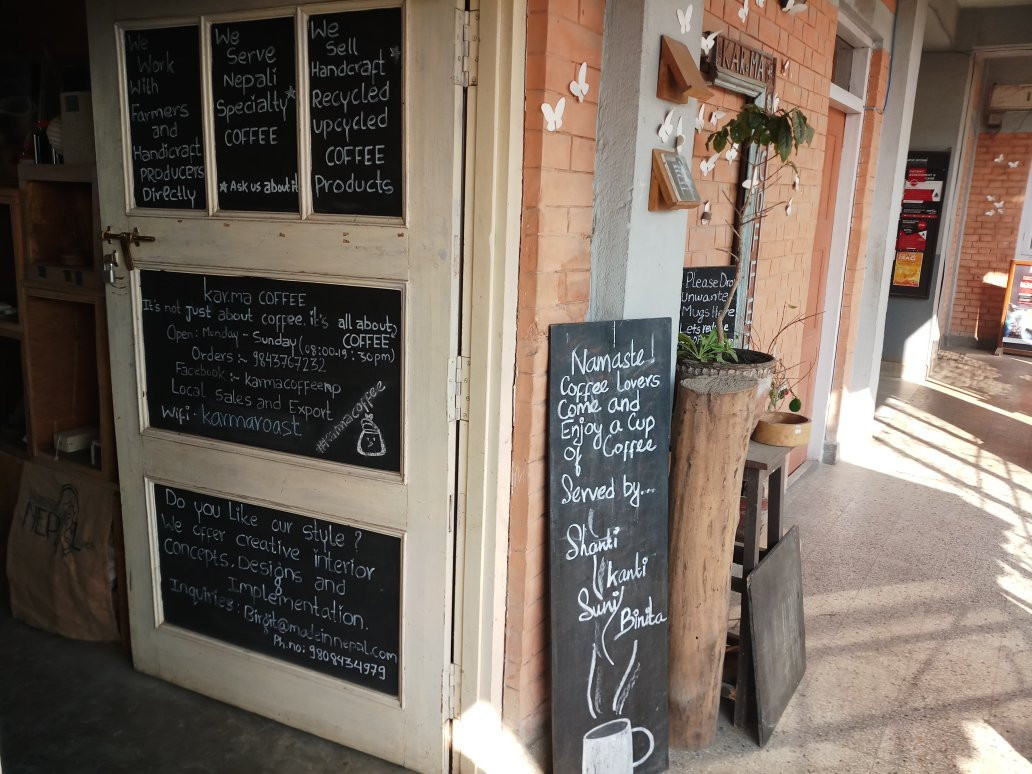 We
Work
With
Farmers
and
Handicraft
PRODUCERS
Directly
We
Serve
Nepali
Specialty*
COFFEE
* Ask us about it
We
Sell
Handcraft*
Recycled
upcycled
COFFEE
Products
kar.ma COFFEE
It's not just about coffee. it's all about
COFFEE
Open: Monday - Sunday (08:00-19:30pm)
Orders :- 9843767232
Facebook :- karmacoffeenp
Local Sales and Export
Wifi - karmaroast
#karmacoffee
Do you Like our style ?
We offer creative interior
Concepts, Designs and
Implementation.
Inquiries: Birgit@madeinnepal.com
Ph.no: 9808434979
NEPAL
Namaste!
Coffee Lovers
Come and
Enjoy a Cup
Of Coffee
Served by...
Shanti
Kanti
Suni
Binita
KAR.MA
Please Dro
Unwante
Mugs Here
Lets re